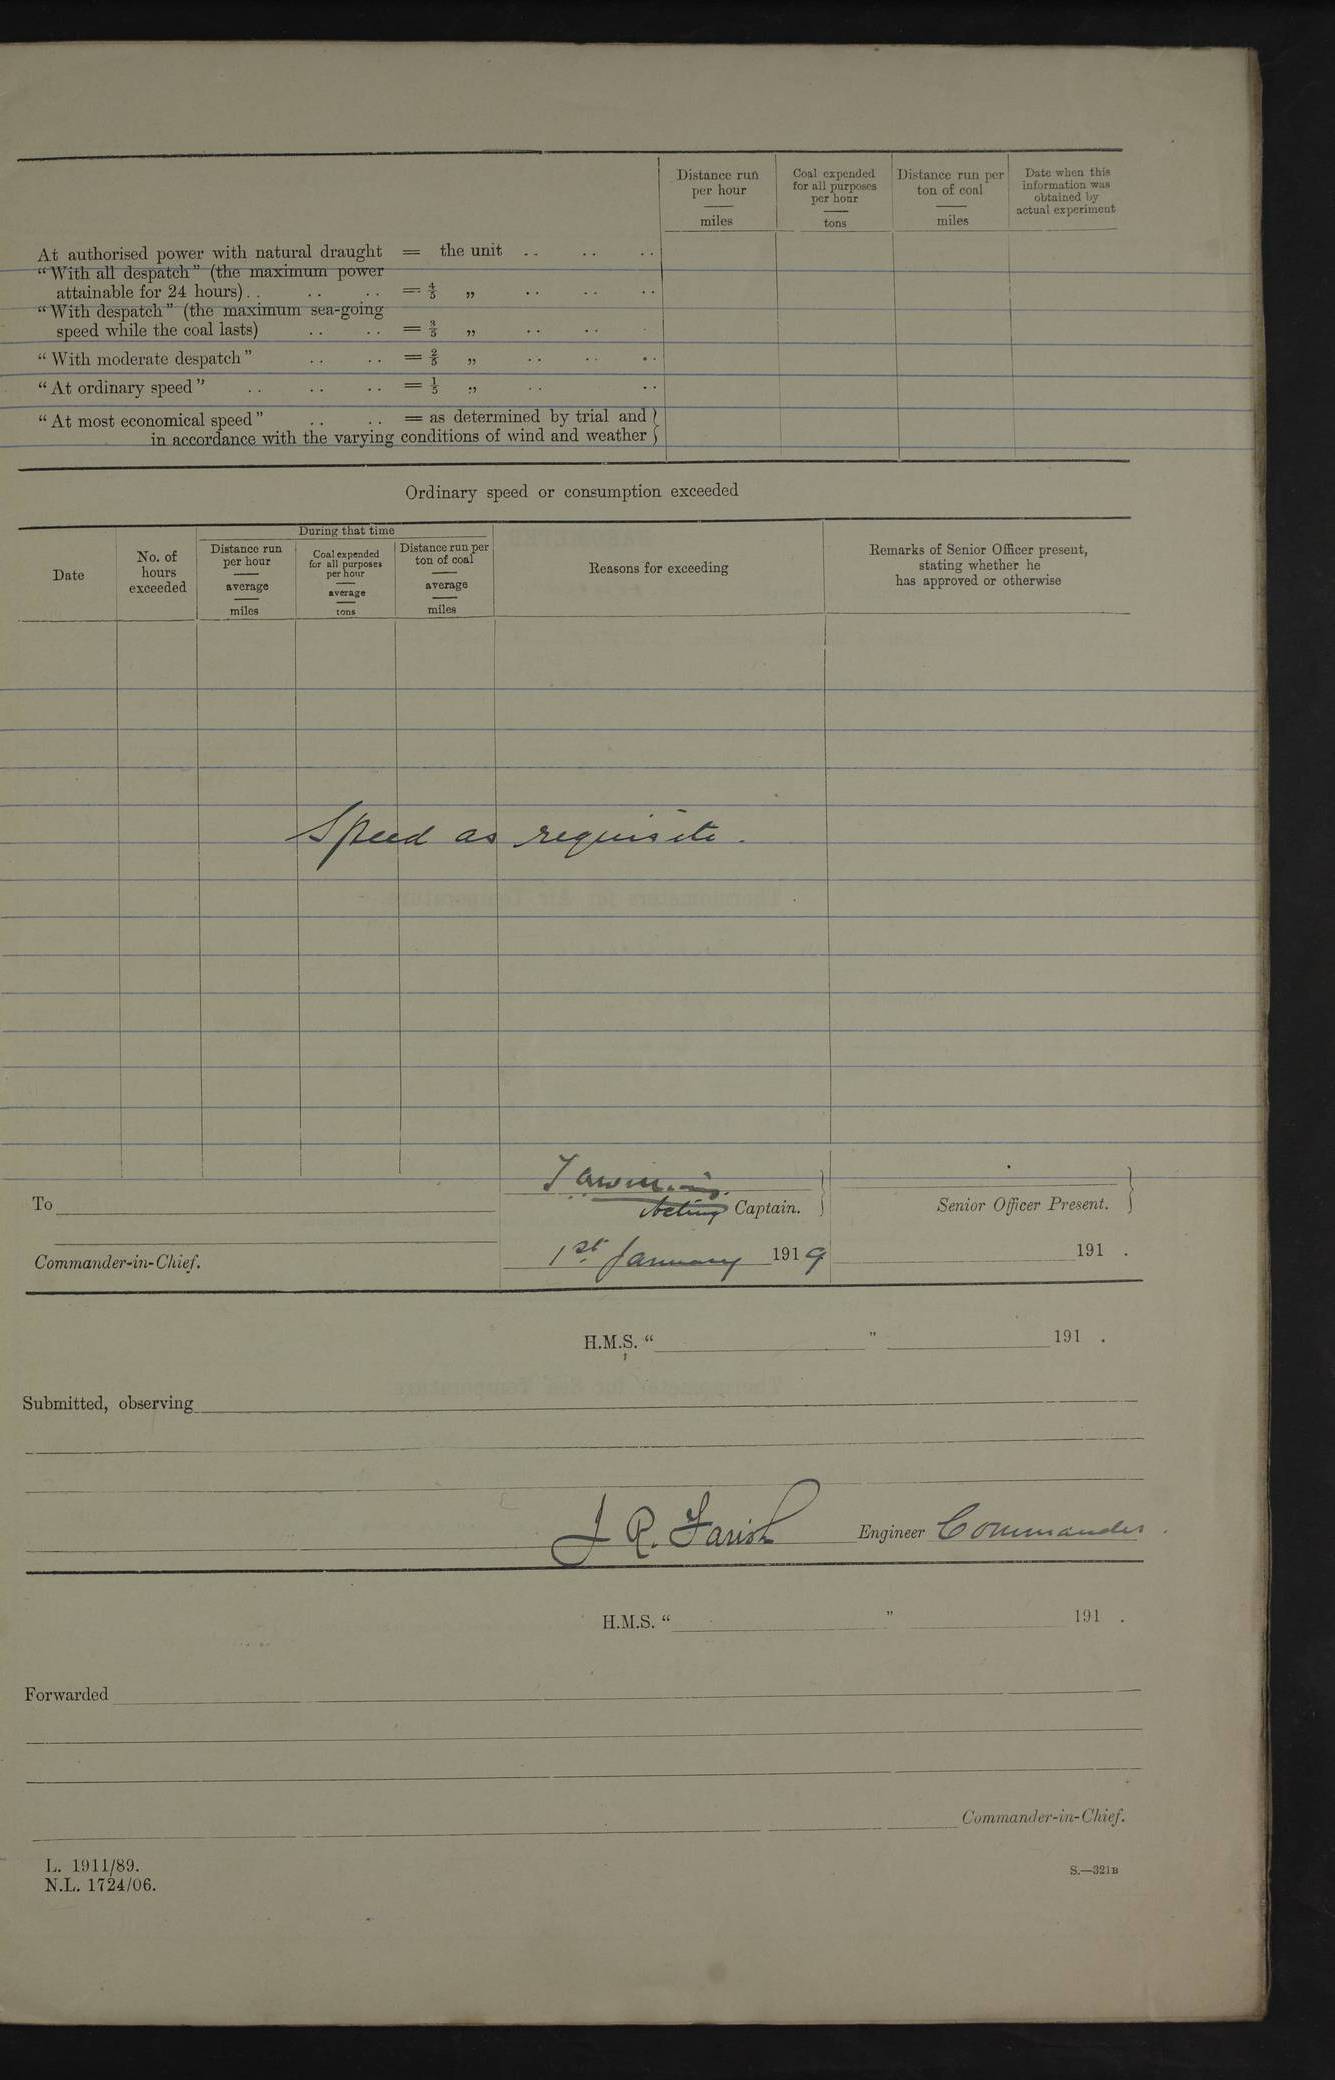 Distance run per hour miles
Coal expended for all purposes per hour tons
Distance run per ton of coal miles
Date when this information was obtained by actual experiment
At authorised power with natural draught = the unit .. .. ..
"With all despatch" (the maximum power
attainable for 24 hours) .. .. .. = 4/5 „ .. .. ..
"With despatch" (the maximum sea-going
speed while the coal lasts) .. .. = 3/5 „ .. .. .
"With moderate despatch" .. .. = 2/5 „ .. .. ..
"At ordinary speed" .. .. .. = 1/5 „ .. ..
"At most economical speed" .. .. = as determined by trial and }
in accordance with the varying conditions of wind and weather }
Ordinary speed or consumption exceeded
During that time
Date
No. of hours exceeded
Distance run per hour average miles
Coal expended for all purposes per hour average tons
Distance run per ton of coal average miles
Reasons for exceeding
Remarks of Senior Officer present, stating whether he has approved or otherwise
Speed as requisite.
To
Acting Captain. }
Senior Officer Present. }
Commander-in-Chief.
1st January 1919
191 .
H.M.S. " " 191 .
Submitted, observing
J R. Farish Engineer Commander.
H.M.S. " " 191 .
Forwarded
Commander-in-Chief.
L. 1911/89.
N.L. 1724/06.
S.—321B